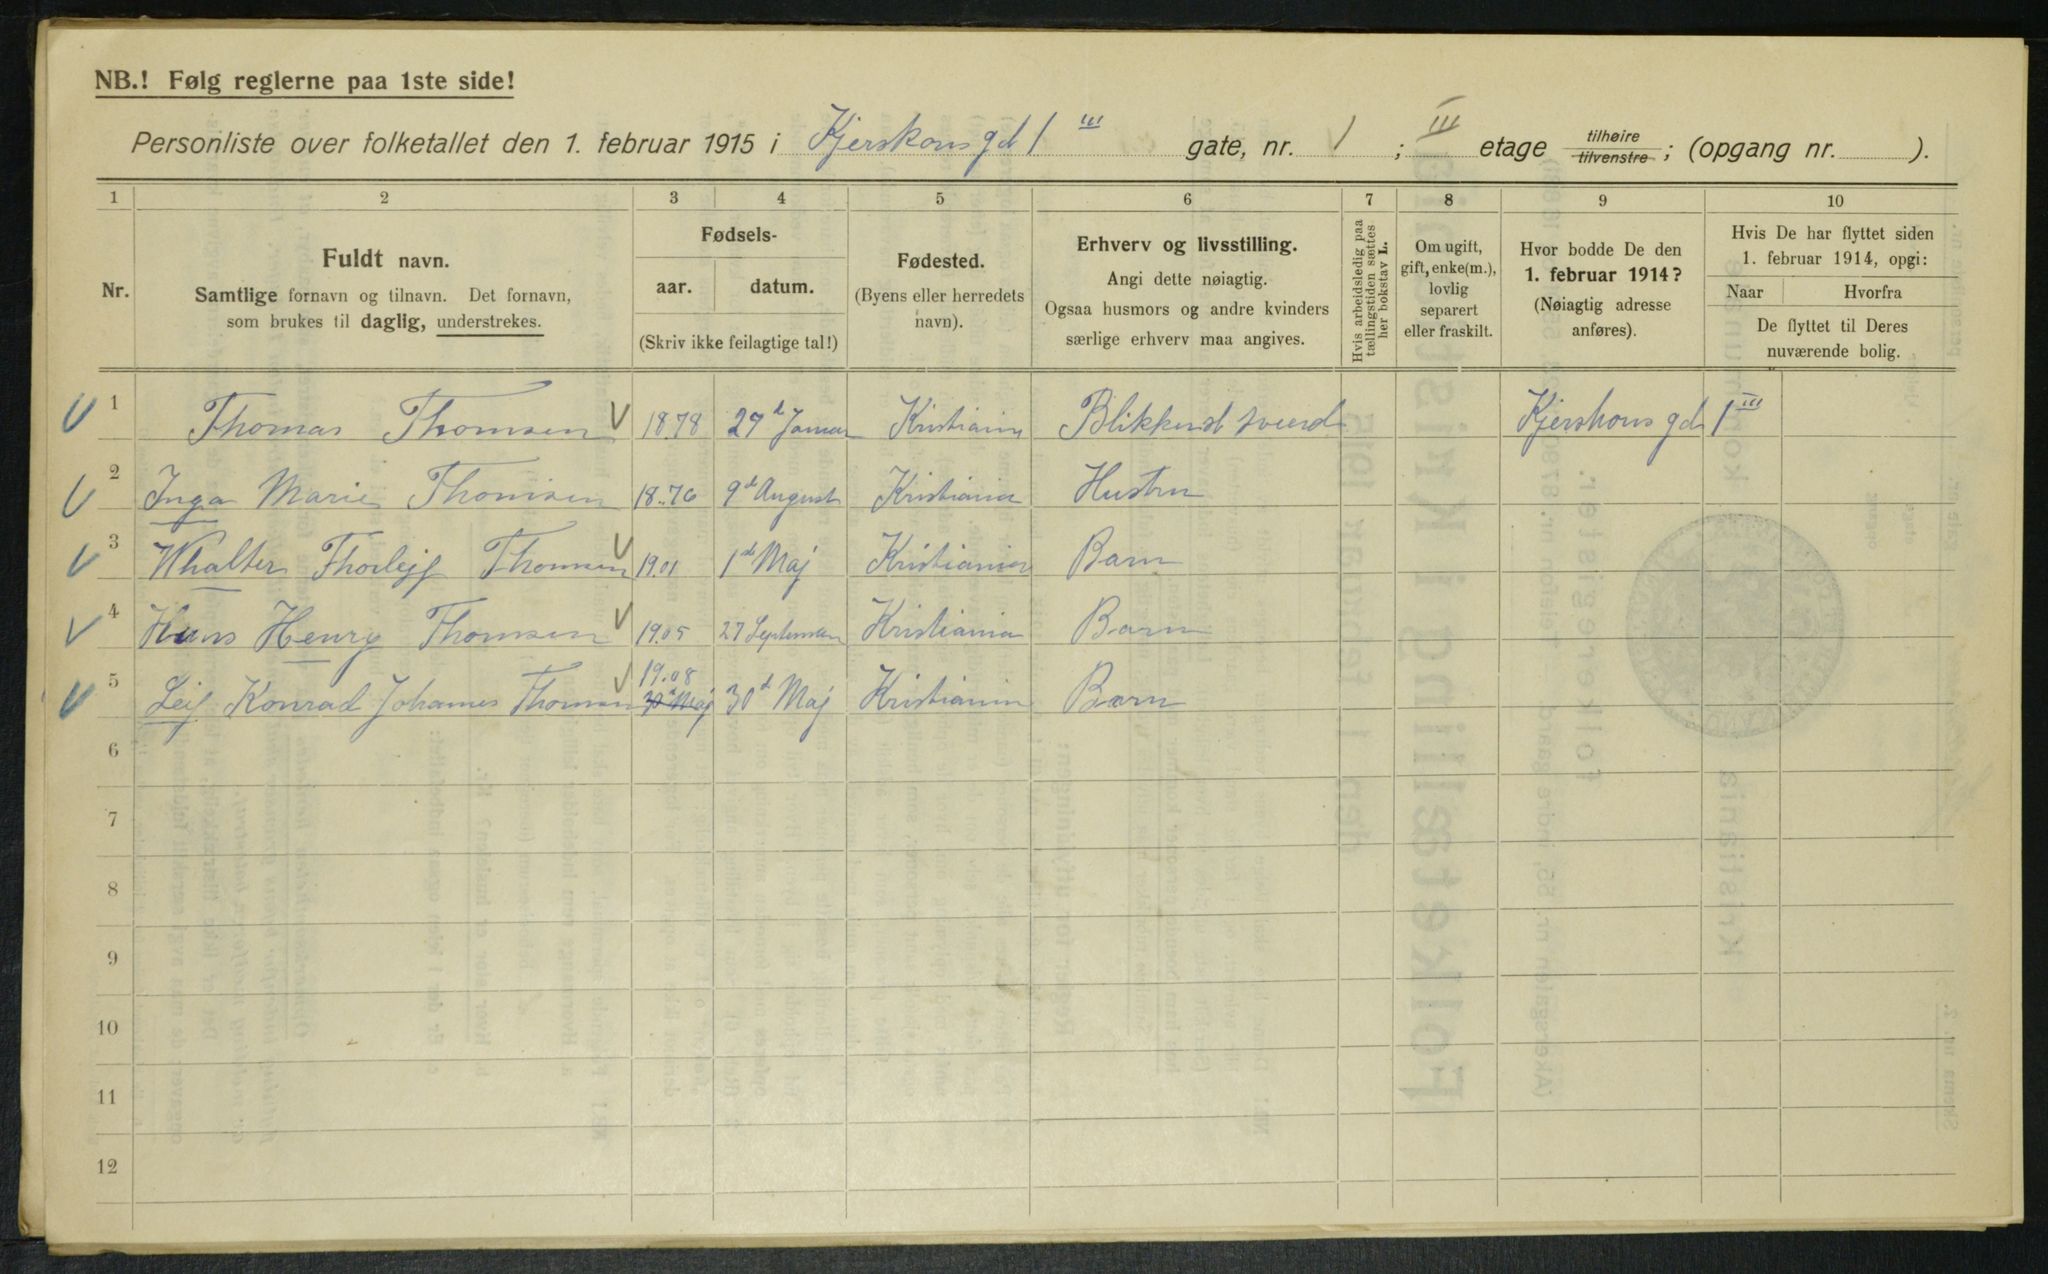 NB.! Følg reglerne paa 1ste side!
Personliste over folketallet den 1. februar 1915 i Kjerskous gd 1 III gate, nr. 1 ; III etage tilhøire tilvenstre ; (opgang nr. ).
1 2 3 4 5 6 7 8 9 10
Nr.
Fuldt navn.
Samtlige fornavn og tilnavn. Det fornavn,
som brukes til daglig, understrekes.
Fødsels-
aar. datum.
(Skriv ikke feilagtige tal!)
Fødested.
(Byens eller herredets
navn).
Erhverv og livsstilling.
Angi dette nøiagtig.
Ogsaa husmors og andre kvinders
særlige erhverv maa angives.
Hvis arbeidsledig paa
tællingstiden sættes
her bokstav L.
Om ugift,
gift, enke(m.),
lovlig
separert
eller fraskilt.
Hvor bodde De den
1. februar 1914?
(Nøiagtig adresse
anføres).
Hvis De har flyttet siden
1. februar 1914, opgi:
Naar Hvorfra
De flyttet til Deres
nuværende bolig.
1 Thomas Thomsen 1878 27d Januar Kristiania Blikkensl svend Kjerskous gd 1 III
2 Inga Marie Thomsen 1876 9d August Kristiania Hustru
3 Whalter Thorleif Thomsen 1901 1d Maj Kristiania Barn
4 Hans Henry Thomsen 1905 27 September Kristiania Barn
5 Leif Konrad Johannes Thomsen 1908 30d Maj 30d Maj Kristiania Barn
6
7
8
9
10
11
12